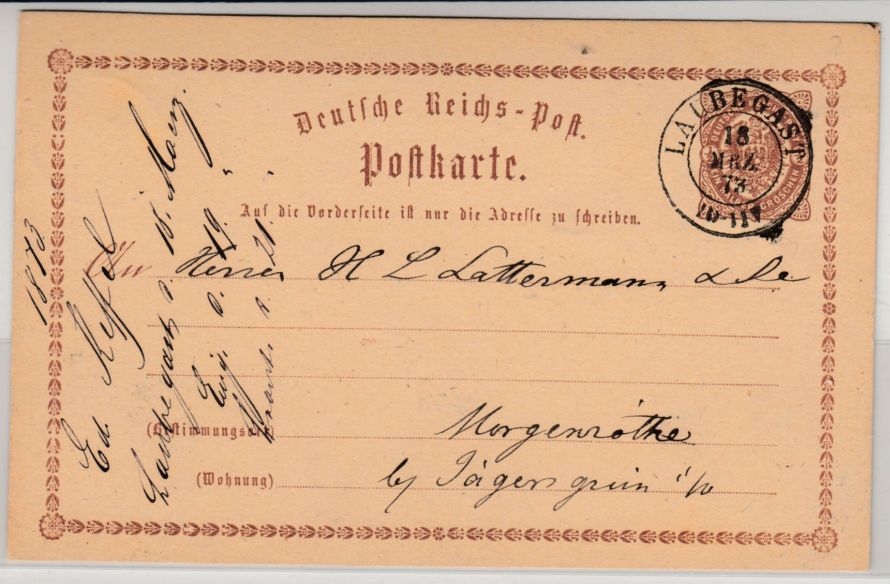 Deutsche Reichs-Post.
Postkarte.
Auf die Vorderseite ist nur die Adresse zu schreiben.
LAUBEGAST
18
MRZ
73
10-11V
GROSCHEN
An Herren H L Lattermann & Ce
(Bestimmungsort) Morgenröthe
(Wohnung) by Jägersgrün i/v
1873
Ed.
Laubegast d. 18. Maerz.
Eing. d. 19. "
d. 21. "